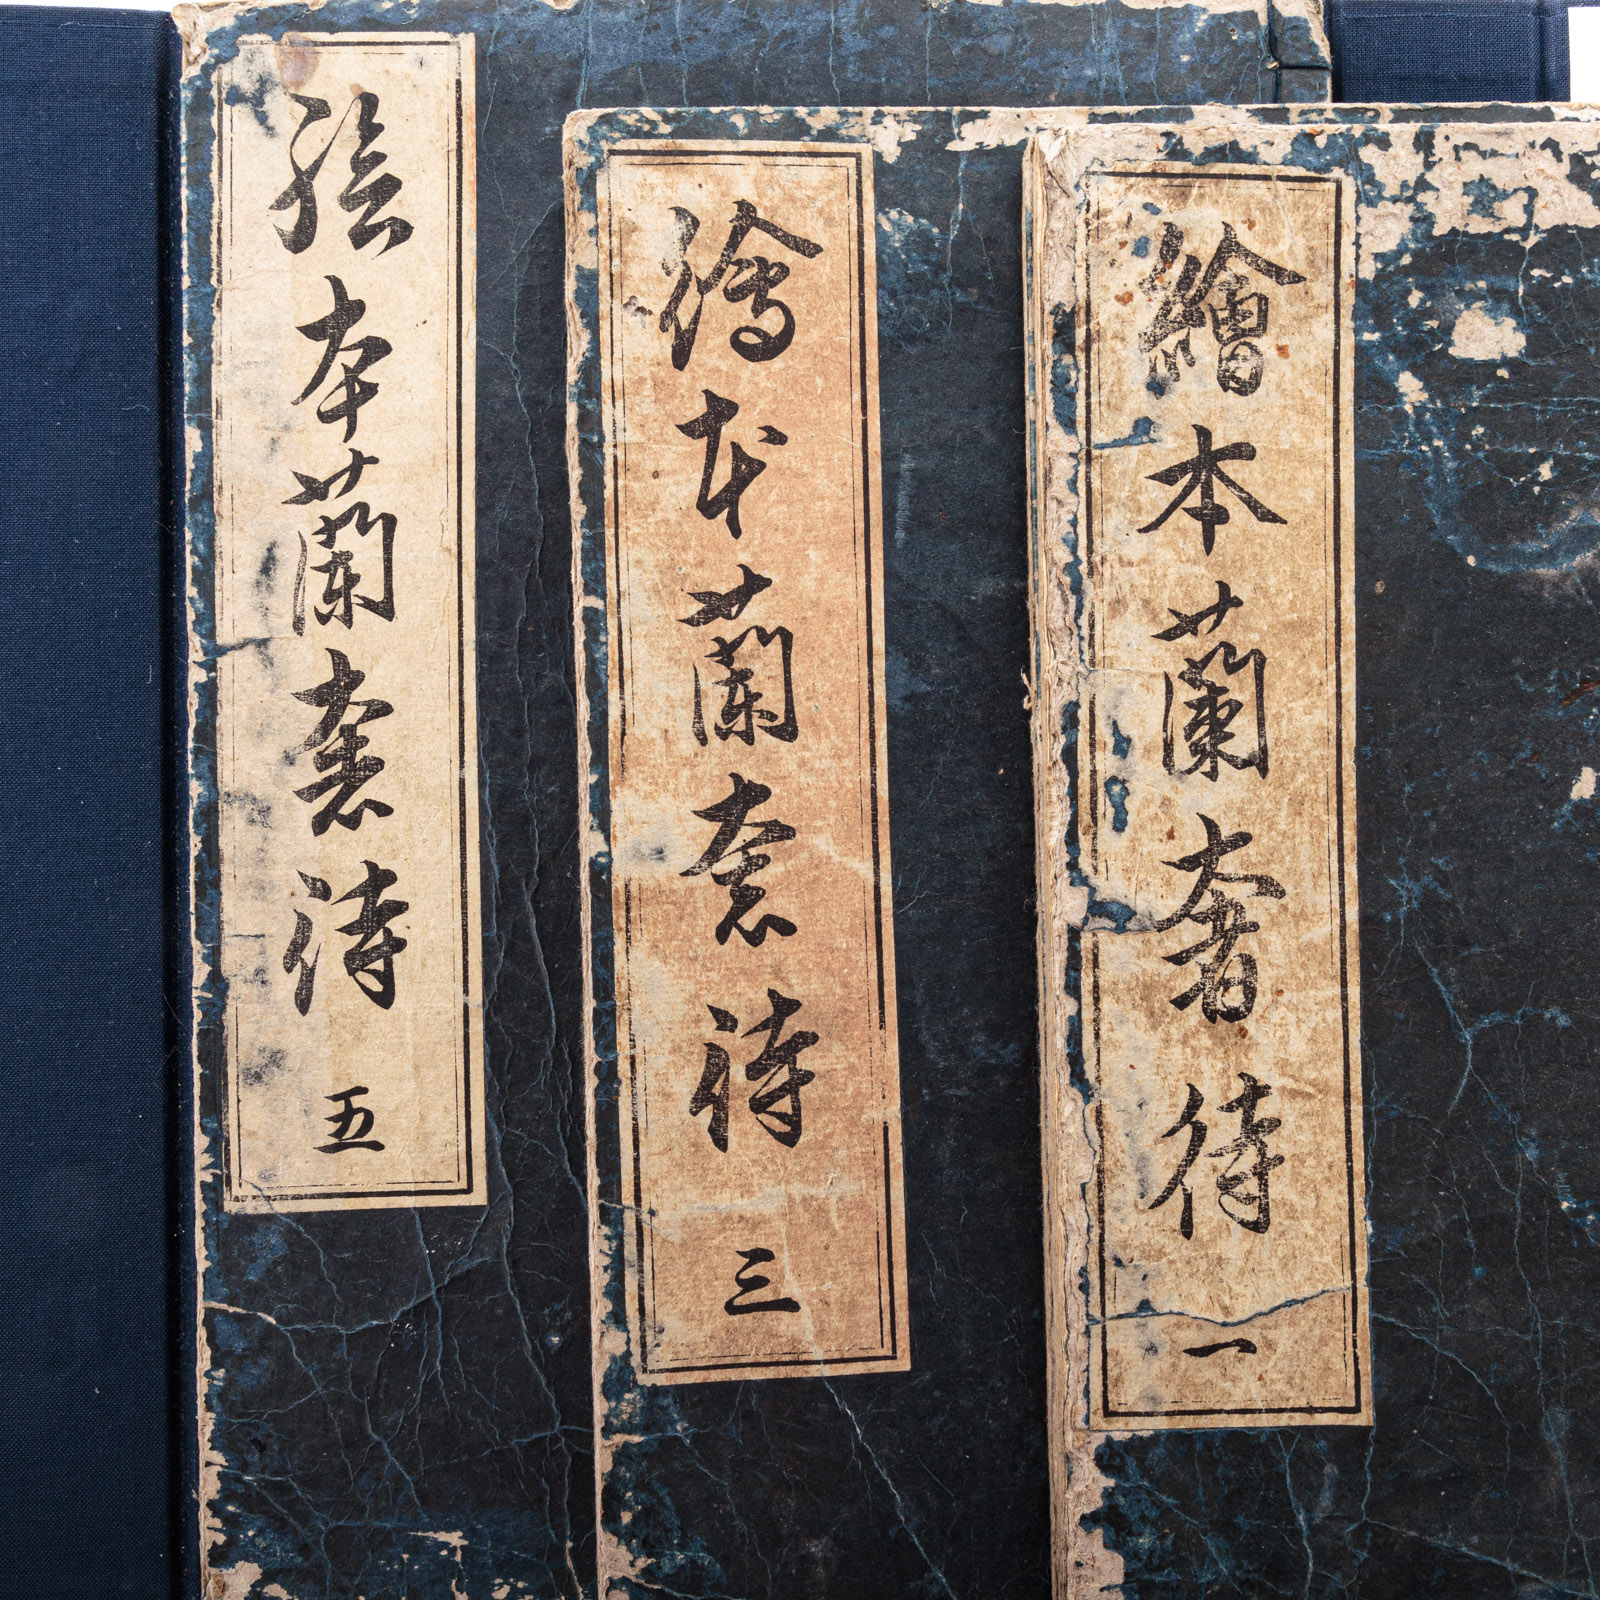 繪本蘭奢待 一
繪本蘭奢待 三
繪本蘭奢待 五